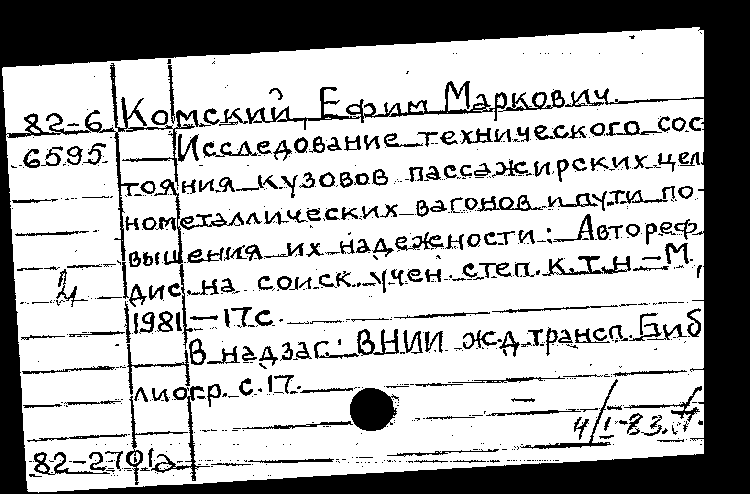 82-6 Комский, Ефим Маркович.
6595 Исследование технического сос-
тояния кузовов пассажирских цель
нометаллических вагонов и пути по-
вышения их надежности: Автореф.
дис. на соиск. учен. степ. к.т.н. – М.,
1981 – 17с.
В надзаг.: ВНИИ ж.д. трансп. Биб
лиогр. с.17.
4/I-83.
82-2701а